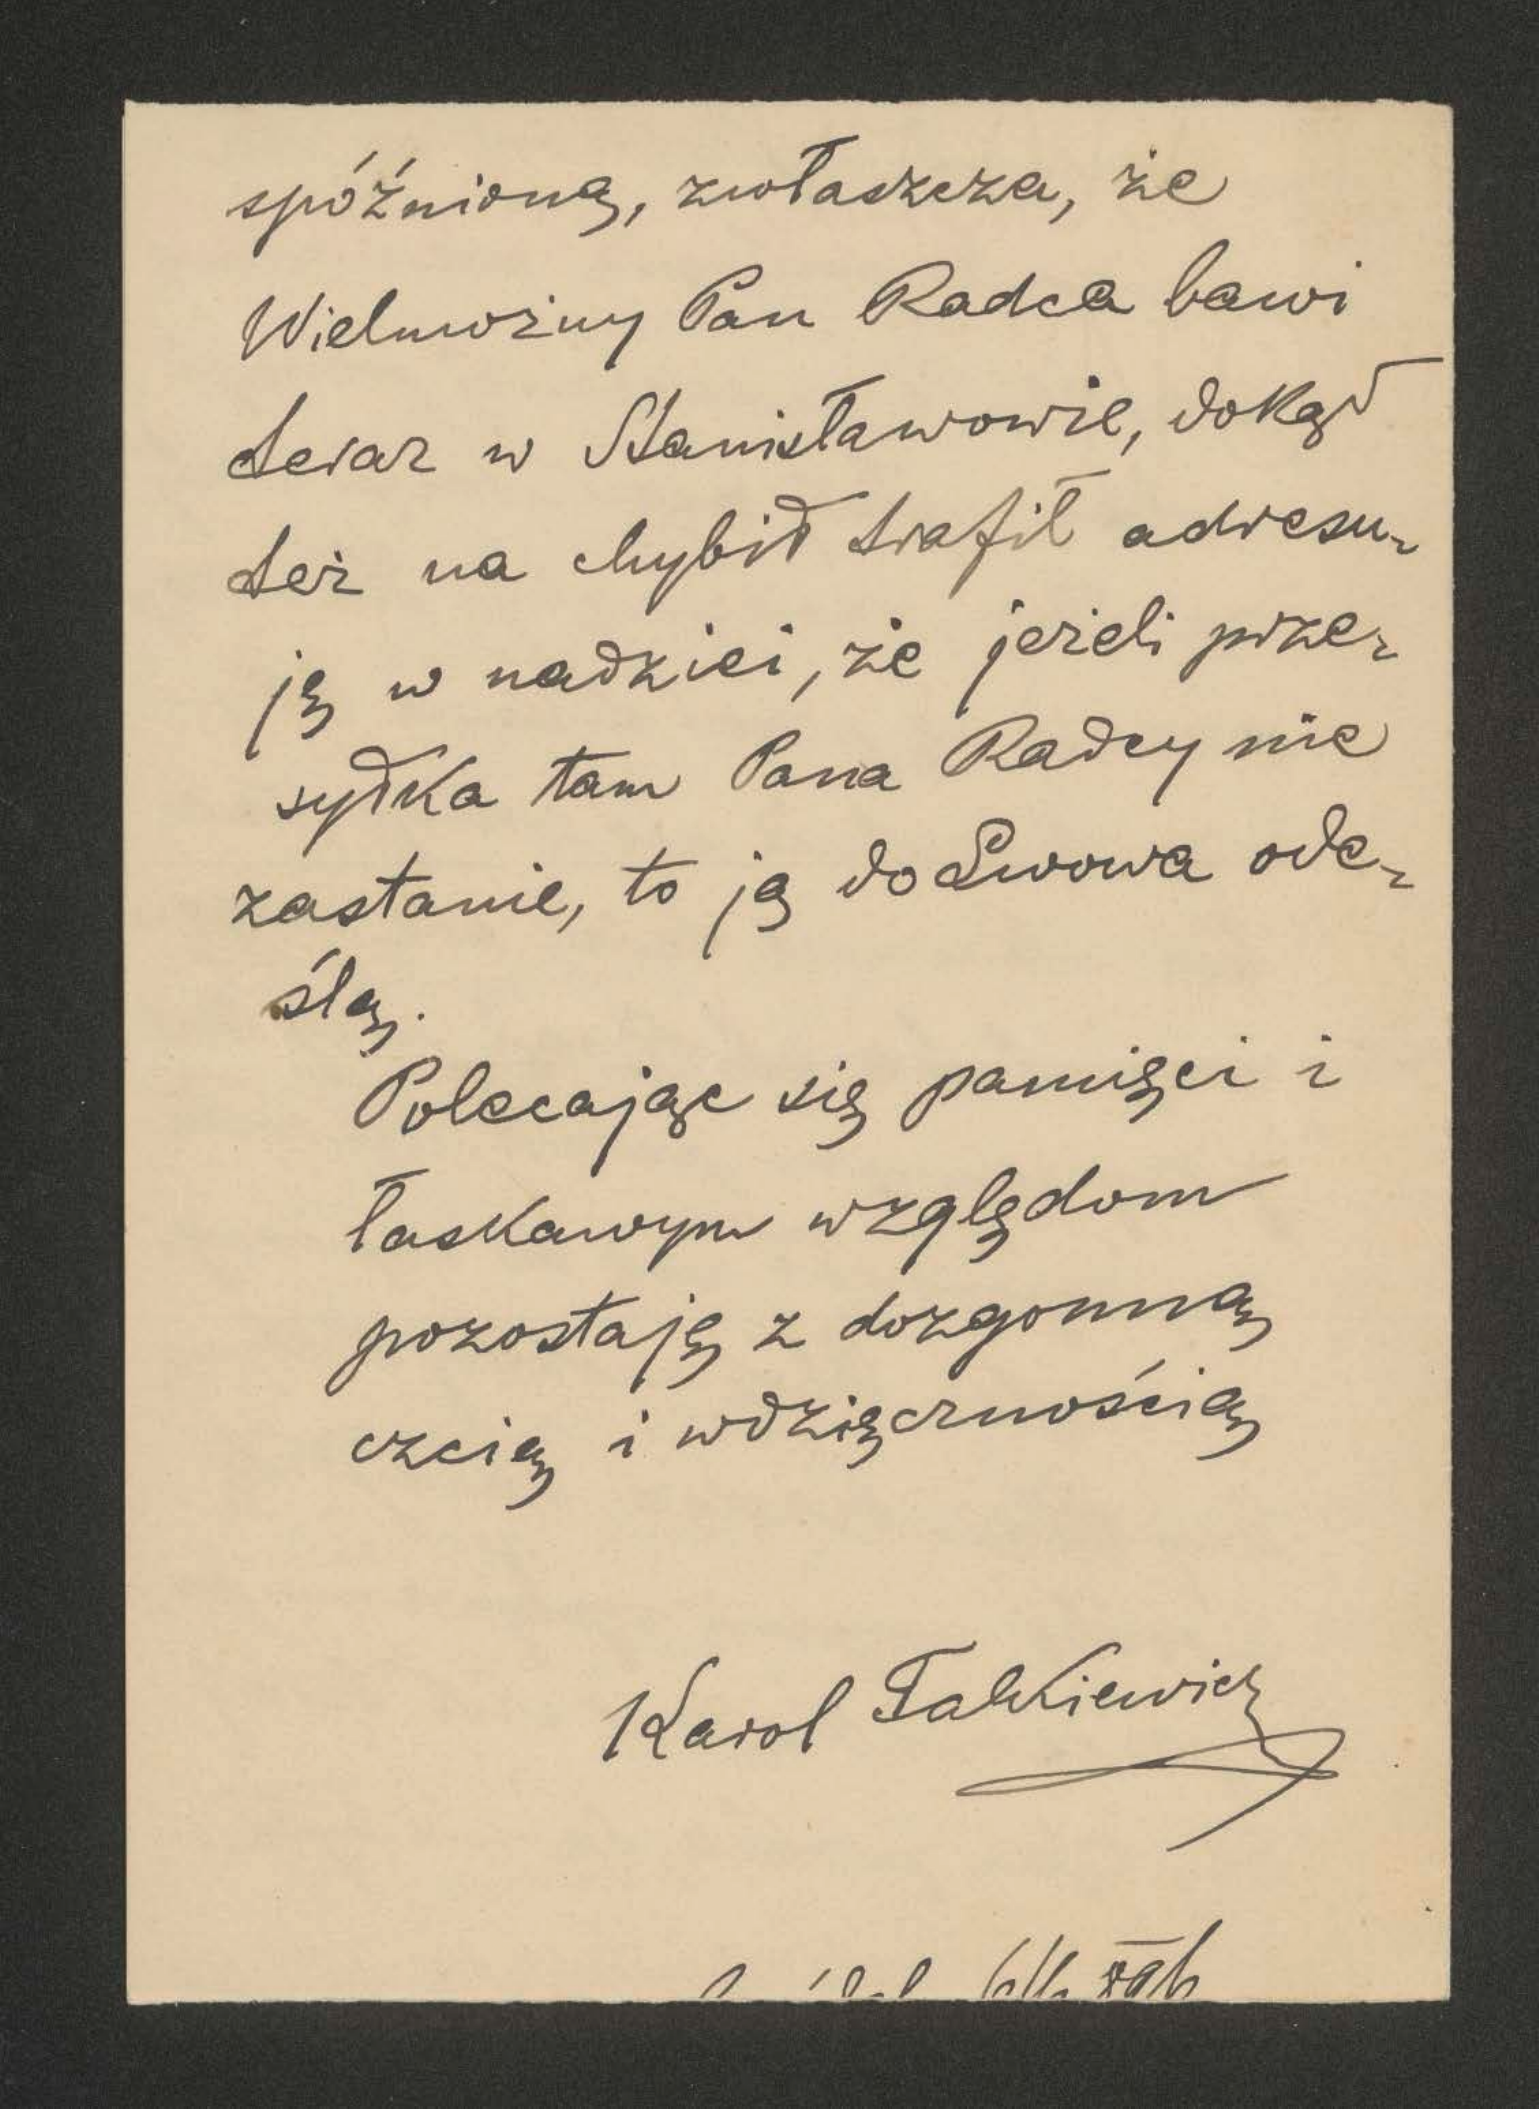 spóźnioną, zwłaszcza, że
Wielmożny Pan Radca bawi
teraz w Stanisławowie, dokąd
też na chybił trafił adresu-
ję w nadziei, że jeżeli prze-
syłka tam Pana Radcy nie
zastanie, to ją do Lwowa ode-
ślą.
Polecając się pamięci i
łaskawym względom
pozostaję z dozgonną
czcią i wdzięcznością
Karol Falkiewicz